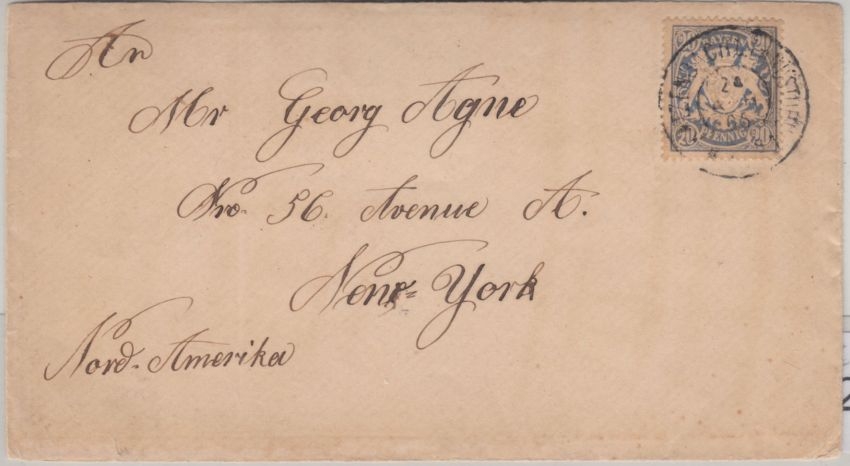 An
Mr Georg Agne
Nro. 56. Avenue A.
New-York
Nord-Amerika
20 20
BAYERN
PFENNIG
20 20